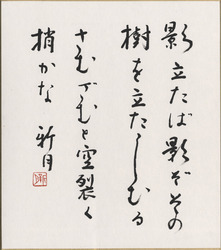 影立たば影ぞその
樹を立たしむる
十むづむと空裂く
梢かな 新月